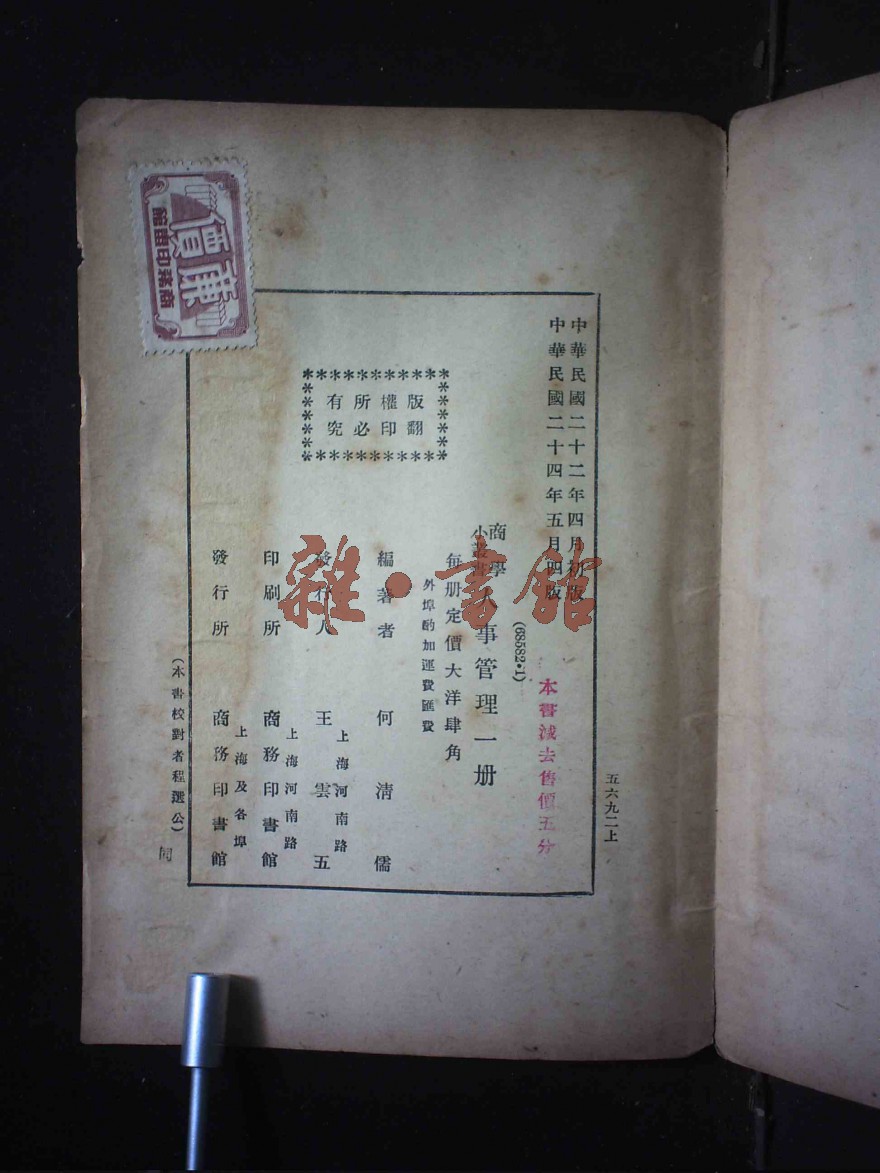 中華民國二十二年四月初版
中華民國二十四年五月四版
五六九二上
本書減去售價五分
(68582•1)
商學
小叢書
人事管理一册
每册定價大洋肆角
外埠酌加運費匯費
版權所有
翻印必究
編著者 何清儒
上海河南路
發行人 王雲五
上海河南路
印刷所 商務印書館
上海及各埠
發行所 商務印書館
(本書校對者程選公)
商務印書館
廉價
雜·書館